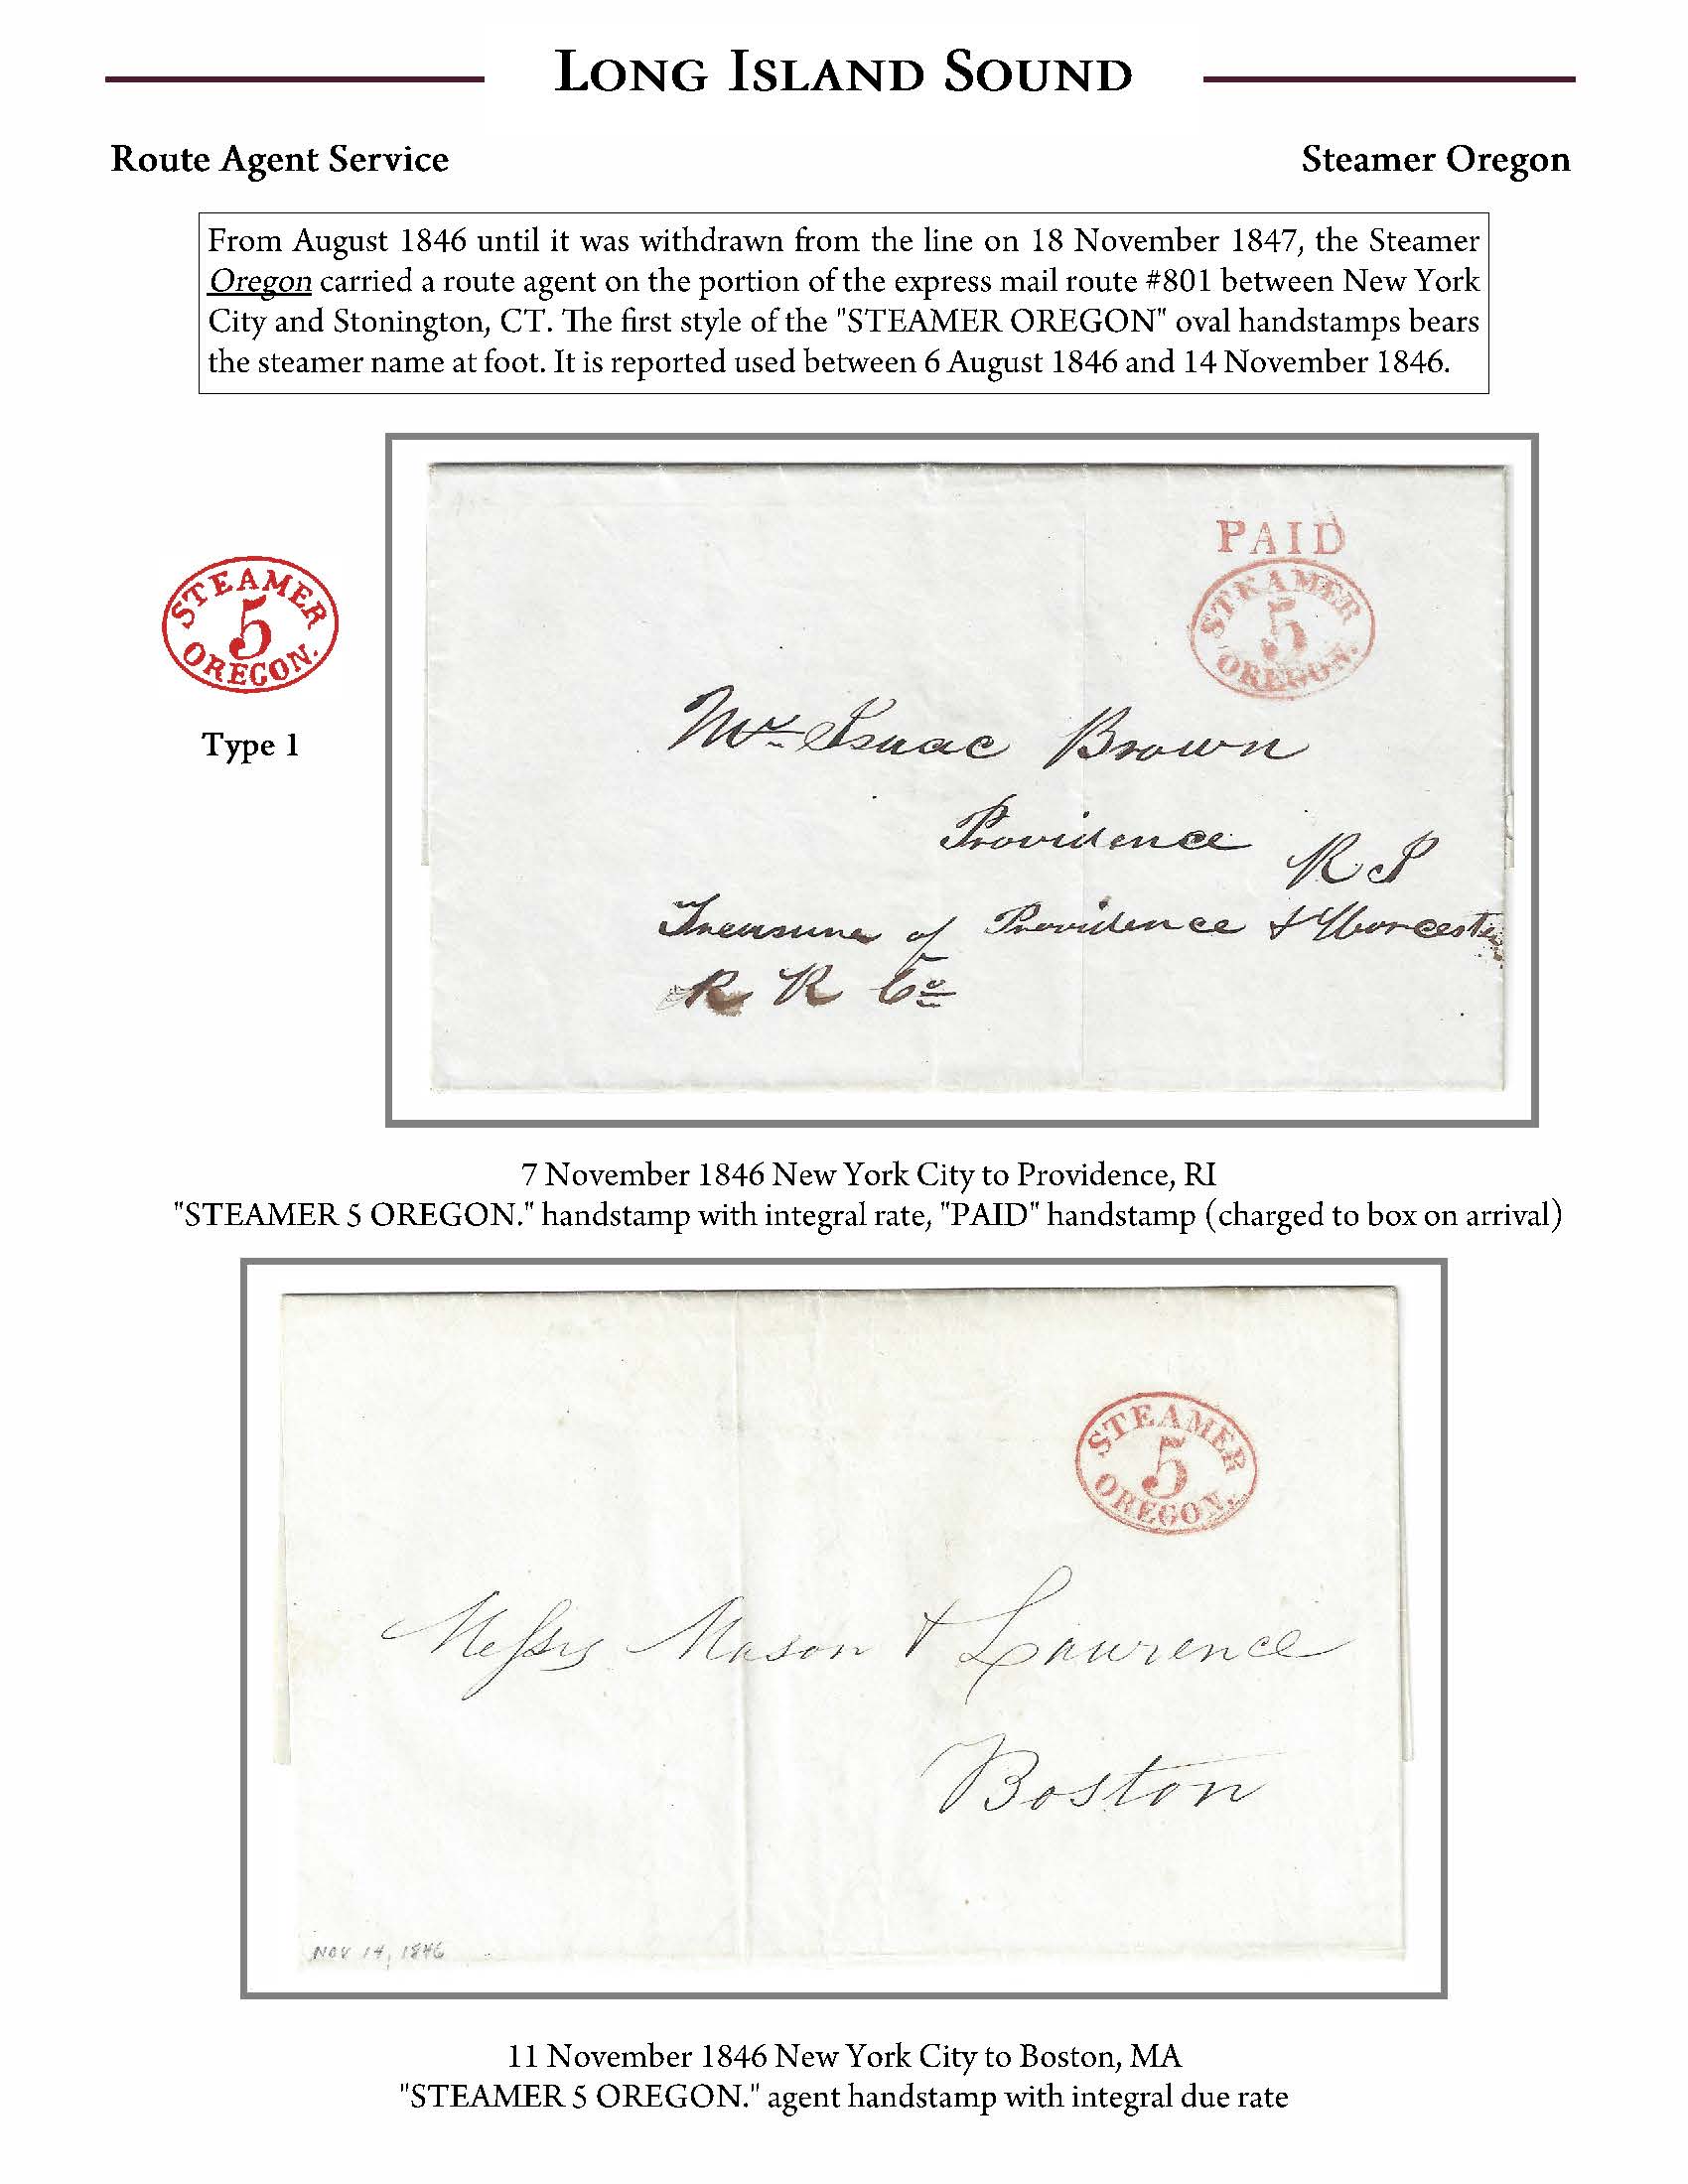 LONG ISLAND SOUND
Route Agent Service
Steamer Oregon
From August 1846 until it was withdrawn from the line on 18 November 1847, the Steamer
Oregon carried a route agent on the portion of the express mail route #801 between New York
City and Stonington, CT. The first style of the "STEAMER OREGON" oval handstamps bears
the steamer name at foot. It is reported used between 6 August 1846 and 14 November 1846.
STEAMER
5
OREGON.
Type 1
PAID
STEAMER
5
OREGON.
Mr Isaac Brown
Providence
R I
Treasurer of Providence & Worcester
R R Co
7 November 1846 New York City to Providence, RI
"STEAMER 5 OREGON." handstamp with integral rate, "PAID" handstamp (charged to box on arrival)
STEAMER
5
OREGON.
Messrs Mason & Lawrence
Boston
NOV 14, 1846
11 November 1846 New York City to Boston, MA
"STEAMER 5 OREGON." agent handstamp with integral due rate